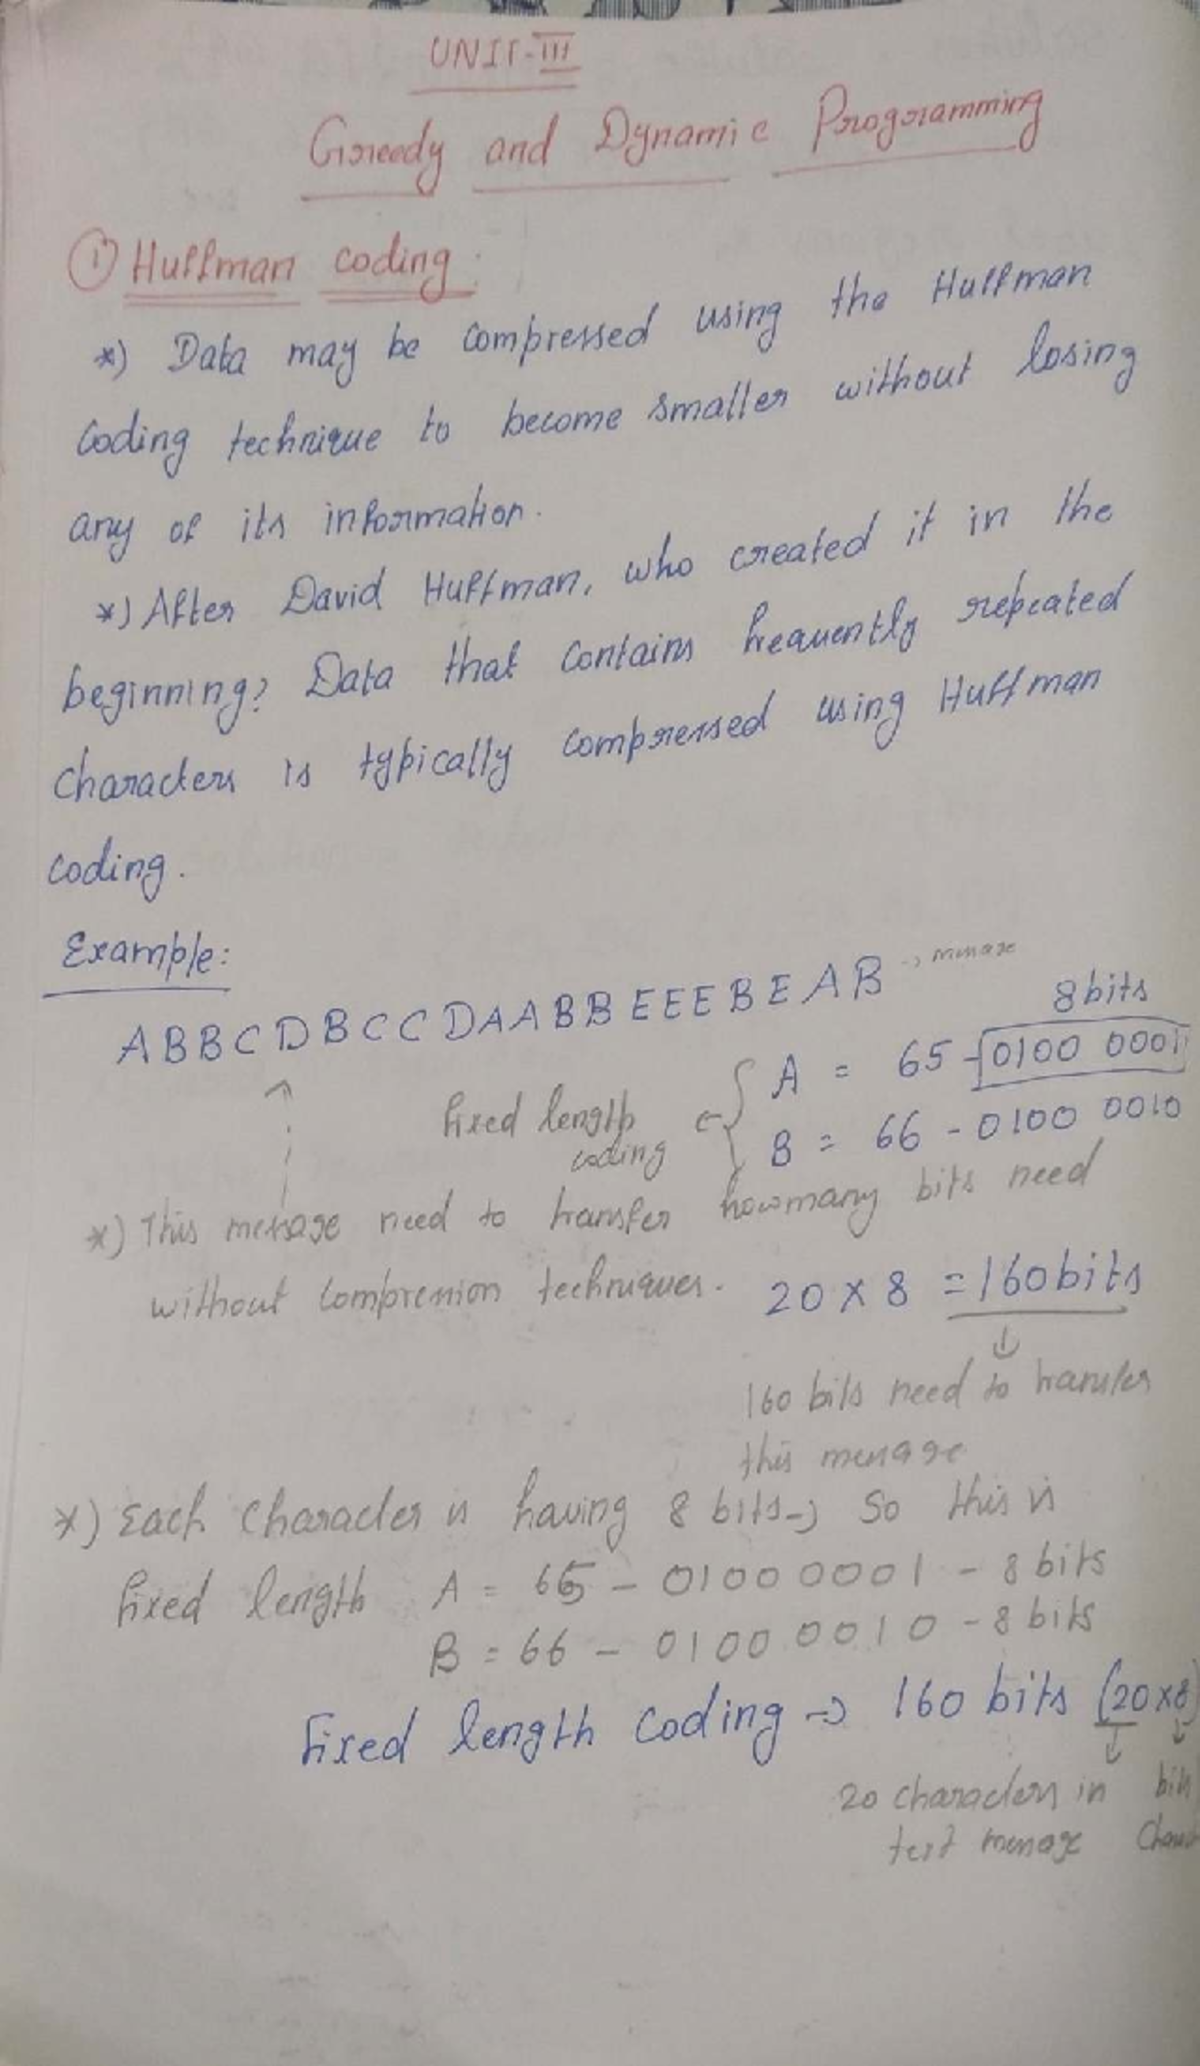 UNIT-III
Greedy and Dynamic Programming
① Huffman coding:
*) Data may be compressed using the Huffman
coding technique to become smaller without losing
any of its information.
*) After David Huffman, who created it in the
beginning? Data that contains frequently repeated
characters is typically compressed using Huffman
coding.
Example:
ABBCDBCCDAABBEEEBEAB → message
8 bits
A = 65 - 0100 0001
fixed length coding
B = 66 - 0100 0010
*) This message need to transfer howmany bits need
without compression techniques. 20 x 8 = 160 bits
160 bits need to transfer
this message
*) Each character is having 8 bits → So this is
fixed length A = 65 - 01000001 - 8 bits
B = 66 - 01000010 - 8 bits
Fixed length coding → 160 bits (20x8)
20 characters in
text message